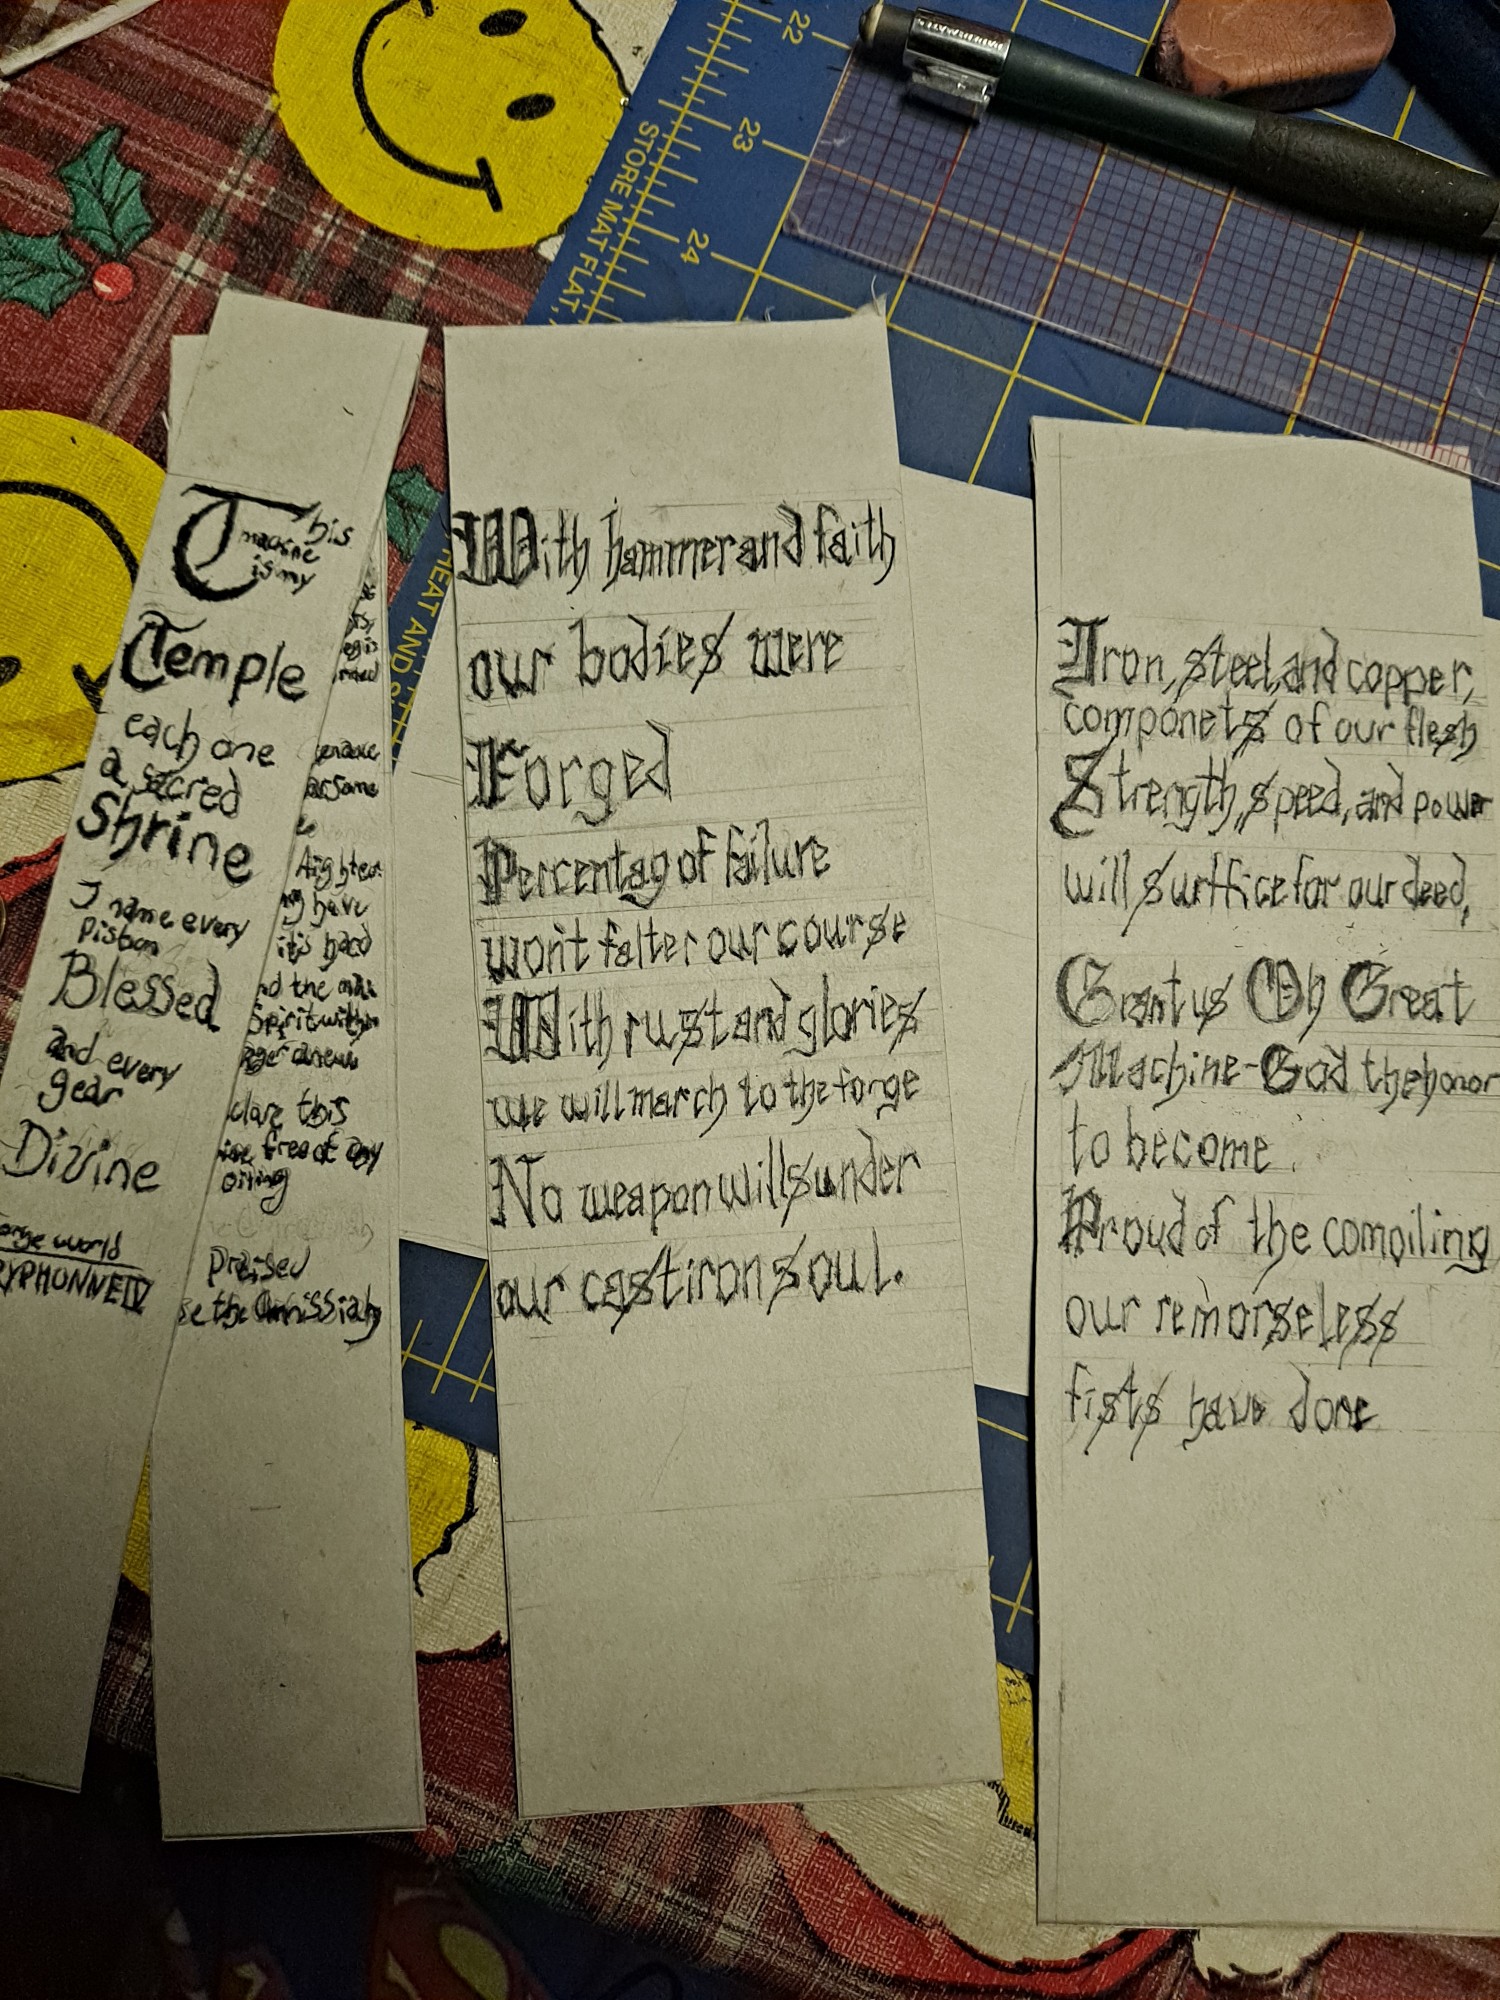 This
machine
is my
Temple
each one
a sacred
Shrine
I name every
Piston
Blessed
and every
gear
Divine
orge world
RYPHONNE IV
clare this
free of any
Praised
se the Omnissiah
With hammer and faith
our bodies were
Forged
Percentag of failure
won't falter our course
With rust and glories
we will march to the forge
No weapon will sunder
our cast iron soul.
Iron, steel, and copper,
componets of our flesh
Strength, speed, and power
will surffice for our deed,
Grant us Oh Great
Machine-God the honor
to become
Proud of the compiling
our remorseless
fists have done
22
23
24
STORE MAT FLAT,
HEAT AND